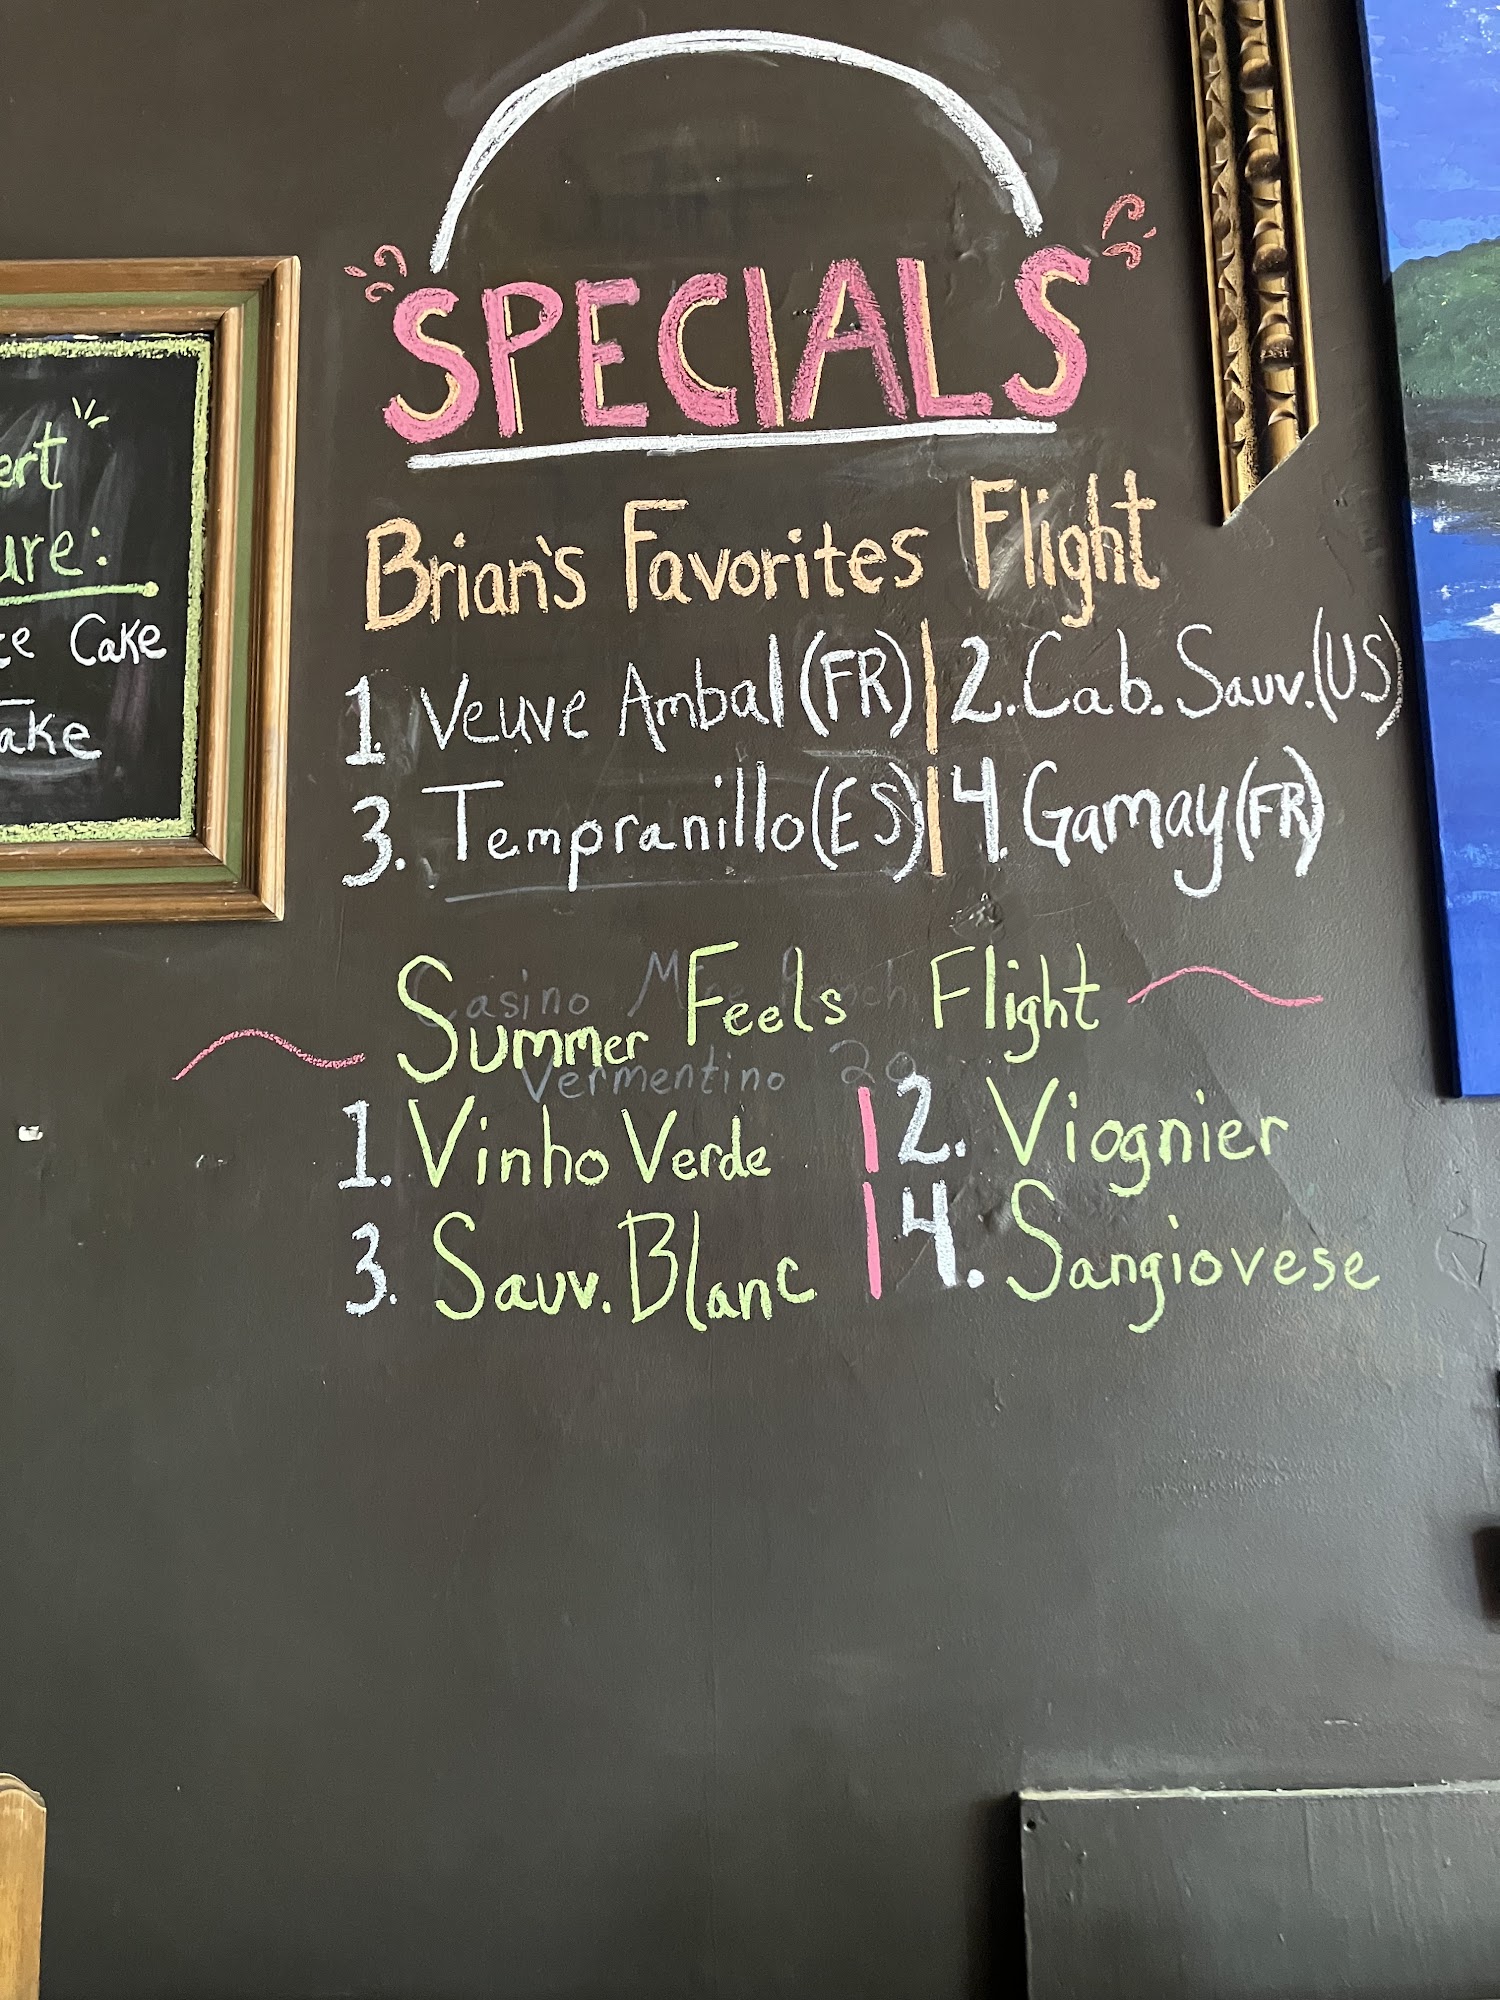 SPECIALS
Brian's Favorites Flight
1. Veuve Ambal (FR) | 2. Cab. Sauv. (US)
3. Tempranillo (ES) | 4. Gamay (FR)
Casino Mine Ranch
Summer Feels Flight
Vermentino 20
1. Vinho Verde | 2. Viognier
3. Sauv. Blanc | 4. Sangiovese
ert
ure:
Cake
ake